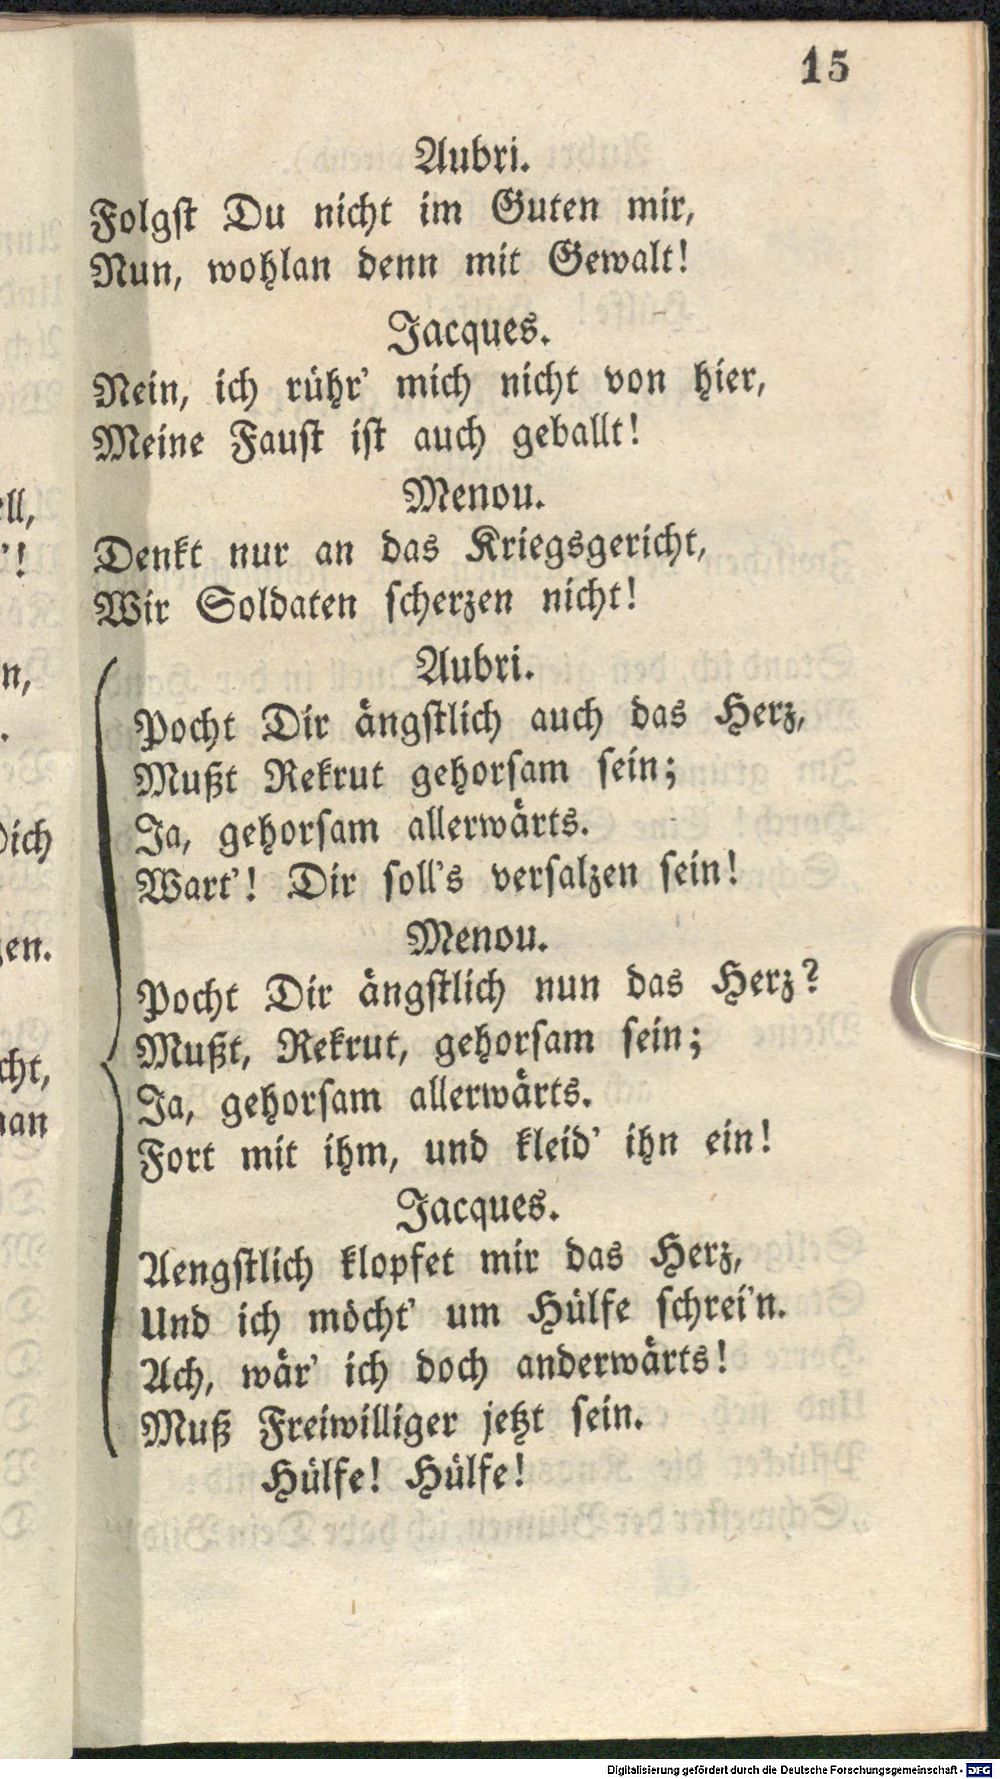 15
Aubri.
Folgst Du nicht im Guten mir,
Nun, wohlan denn mit Gewalt!
Jacques.
Nein, ich rühr' mich nicht von hier,
Meine Faust ist auch geballt!
Menou.
Denkt nur an das Kriegsgericht,
Wir Soldaten scherzen nicht!
Aubri.
Pocht Dir ängstlich auch das Herz,
Mußt Rekrut gehorsam sein;
Ja, gehorsam allerwärts.
Wart'! Dir soll's versalzen sein!
Menou.
Pocht Dir ängstlich nun das Herz?
Mußt, Rekrut, gehorsam sein;
Ja, gehorsam allerwärts.
Fort mit ihm, und kleid' ihn ein!
Jacques.
Aengstlich klopfet mir das Herz,
Und ich möcht' um Hülfe schrei'n.
Ach, wär' ich doch anderwärts!
Muß Freiwilliger jetzt sein.
Hülfe! Hülfe!
Digitalisierung gefördert durch die Deutsche Forschungsgemeinschaft - DFG